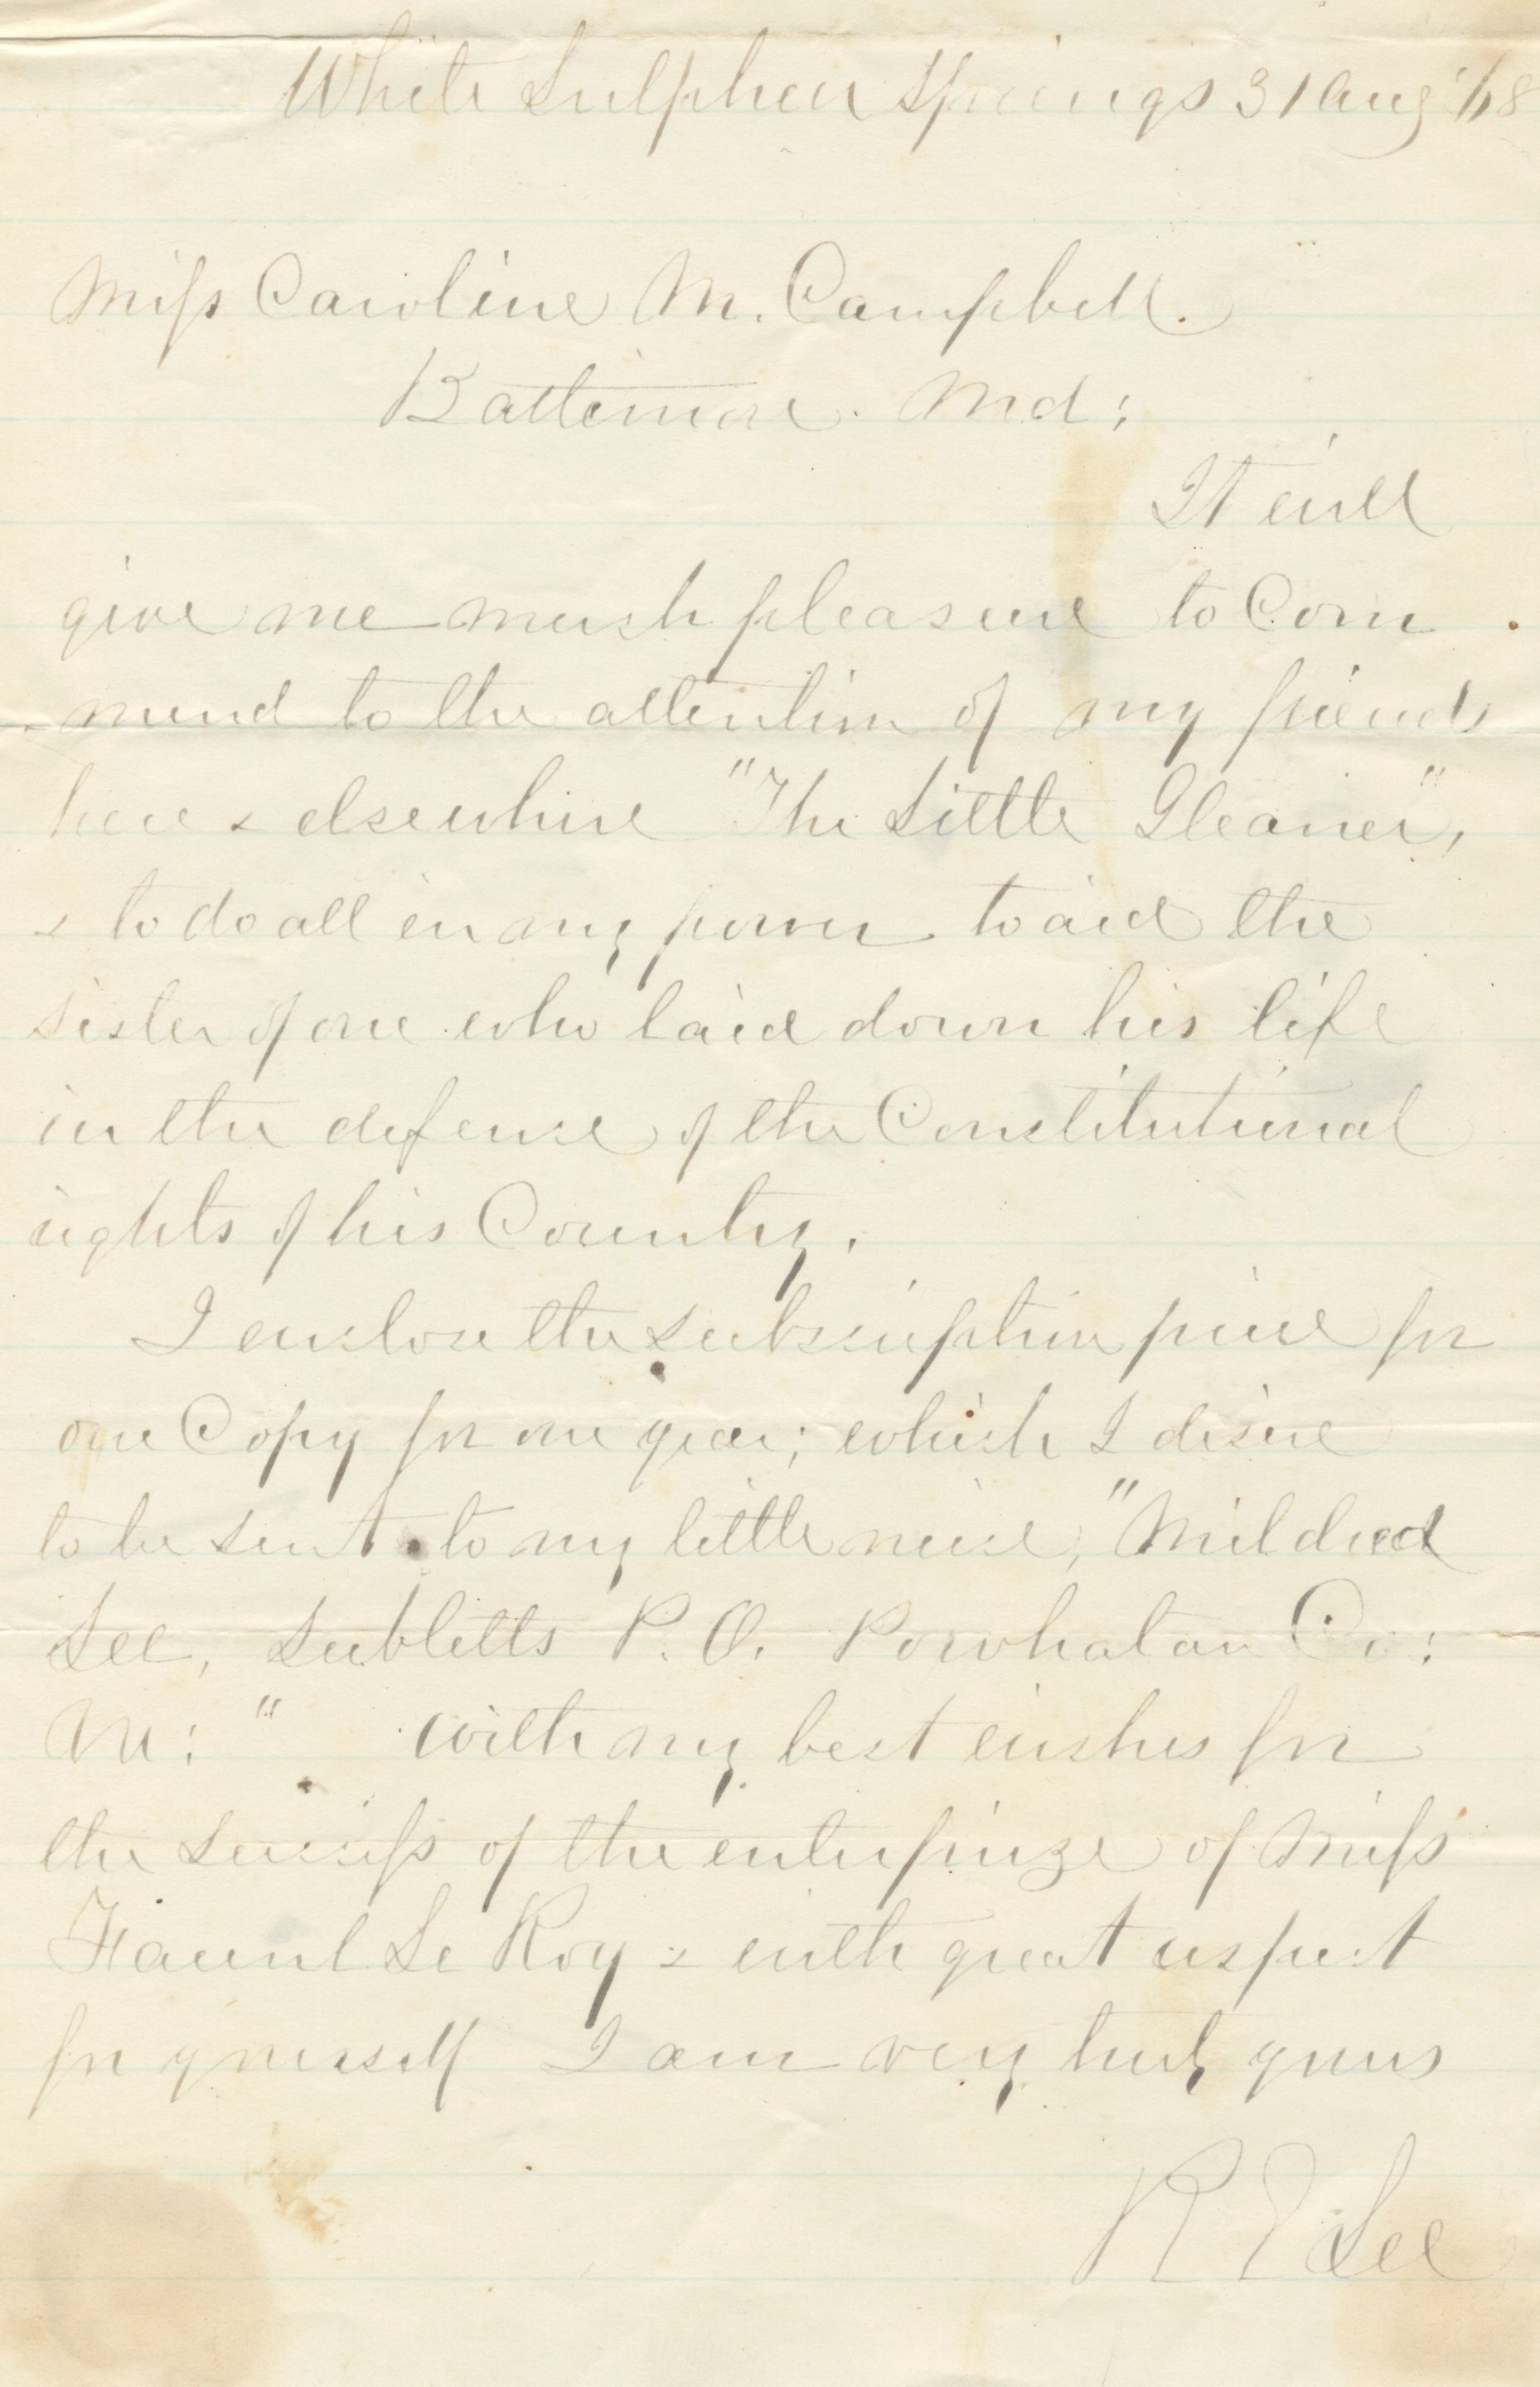 White Sulpher Springs 31 Aug '68
Miss Caroline M. Campbell.
Baltimore. Md:
It will
give me much pleasure to Com
-mend to the attention of my friends
here & elsewhere "The Little Gleaner",
& to do all in my power to aid the
sister of one who laid down his life
in the defense of the Constitutional
rights of his Country.
I enclose the subscription price for
one Copy for one year; which I desire
to be sent to my little niece, "Mildred
Lee, Subletts P. O. Powhatan Co:
Va: " With my best wishes for
the success of the enterprize of Miss
Fauntleroy & with great respect
for yourself I am very truly yours
R E Lee